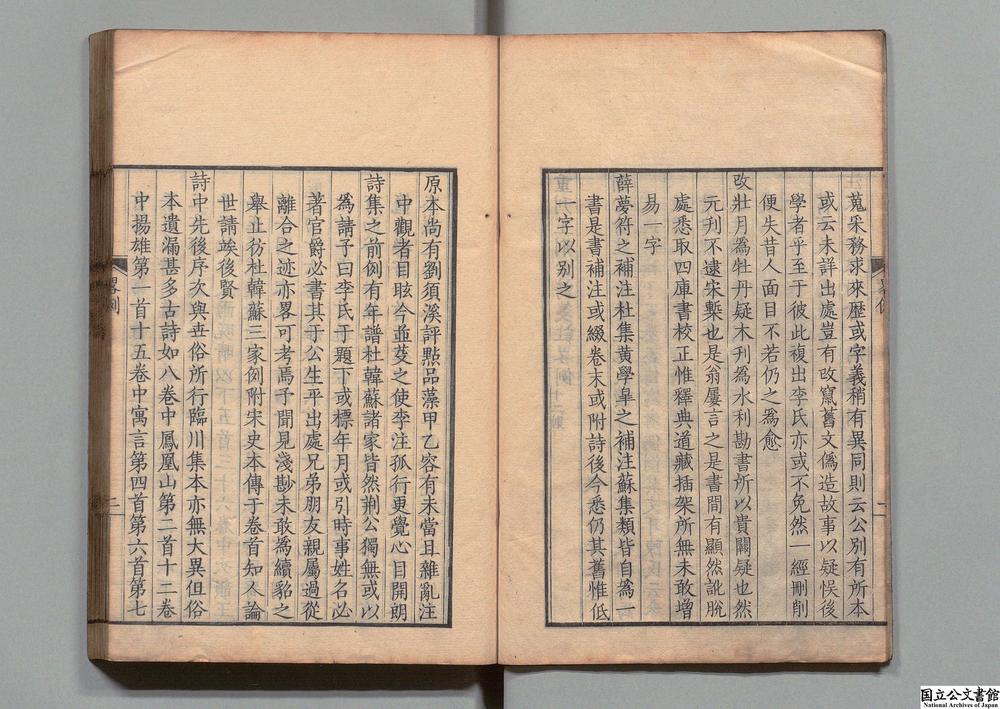 蒐采務求來歷或字義稍有異同則云公別有所本
或云未詳出處豈有改竄舊文僞造故事以疑悞後
學者乎至于彼此複出李氏亦或不免然一經刪削
便失昔人面目不若仍之為愈
改壯月為牡丹疑木刋為水利勘書所以貴闕疑也然
元刋不逮宋槧也是翁屢言之是書間有顯然訛脫
處悉取四庫書校正惟釋典道藏插架所無未敢增
易一字
薛夢符之補注杜集黃學臯之補注蘇集類皆自為一
書是書補注或綴卷末或附詩後今悉仍其舊惟低
一字以別之
畧例
二
原本尚有劉須溪評點品藻甲乙容有未當且雜亂注
中觀者目眩今並芟之使李注孤行更覺心目開朗
詩集之前例有年譜杜韓蘇諸家皆然荆公獨無或以
為請予曰李氏于題下或標年月或引時事姓名必
著官爵必書其于公生平出處兄弟朋友親屬過從
離合之迹亦畧可考焉予聞見淺尠未敢為續貂之
舉止彷杜韓蘇三家例附宋史本傳于卷首知人論
世請竢後賢
詩中先後序次與世俗所行臨川集本亦無大異但俗
本遺漏甚多古詩如八卷中鳳凰山第二首十二卷
中揚雄第一首十五卷中寓言第四首第六首第七
畧例
三
国立公文書館
National Archives of Japan